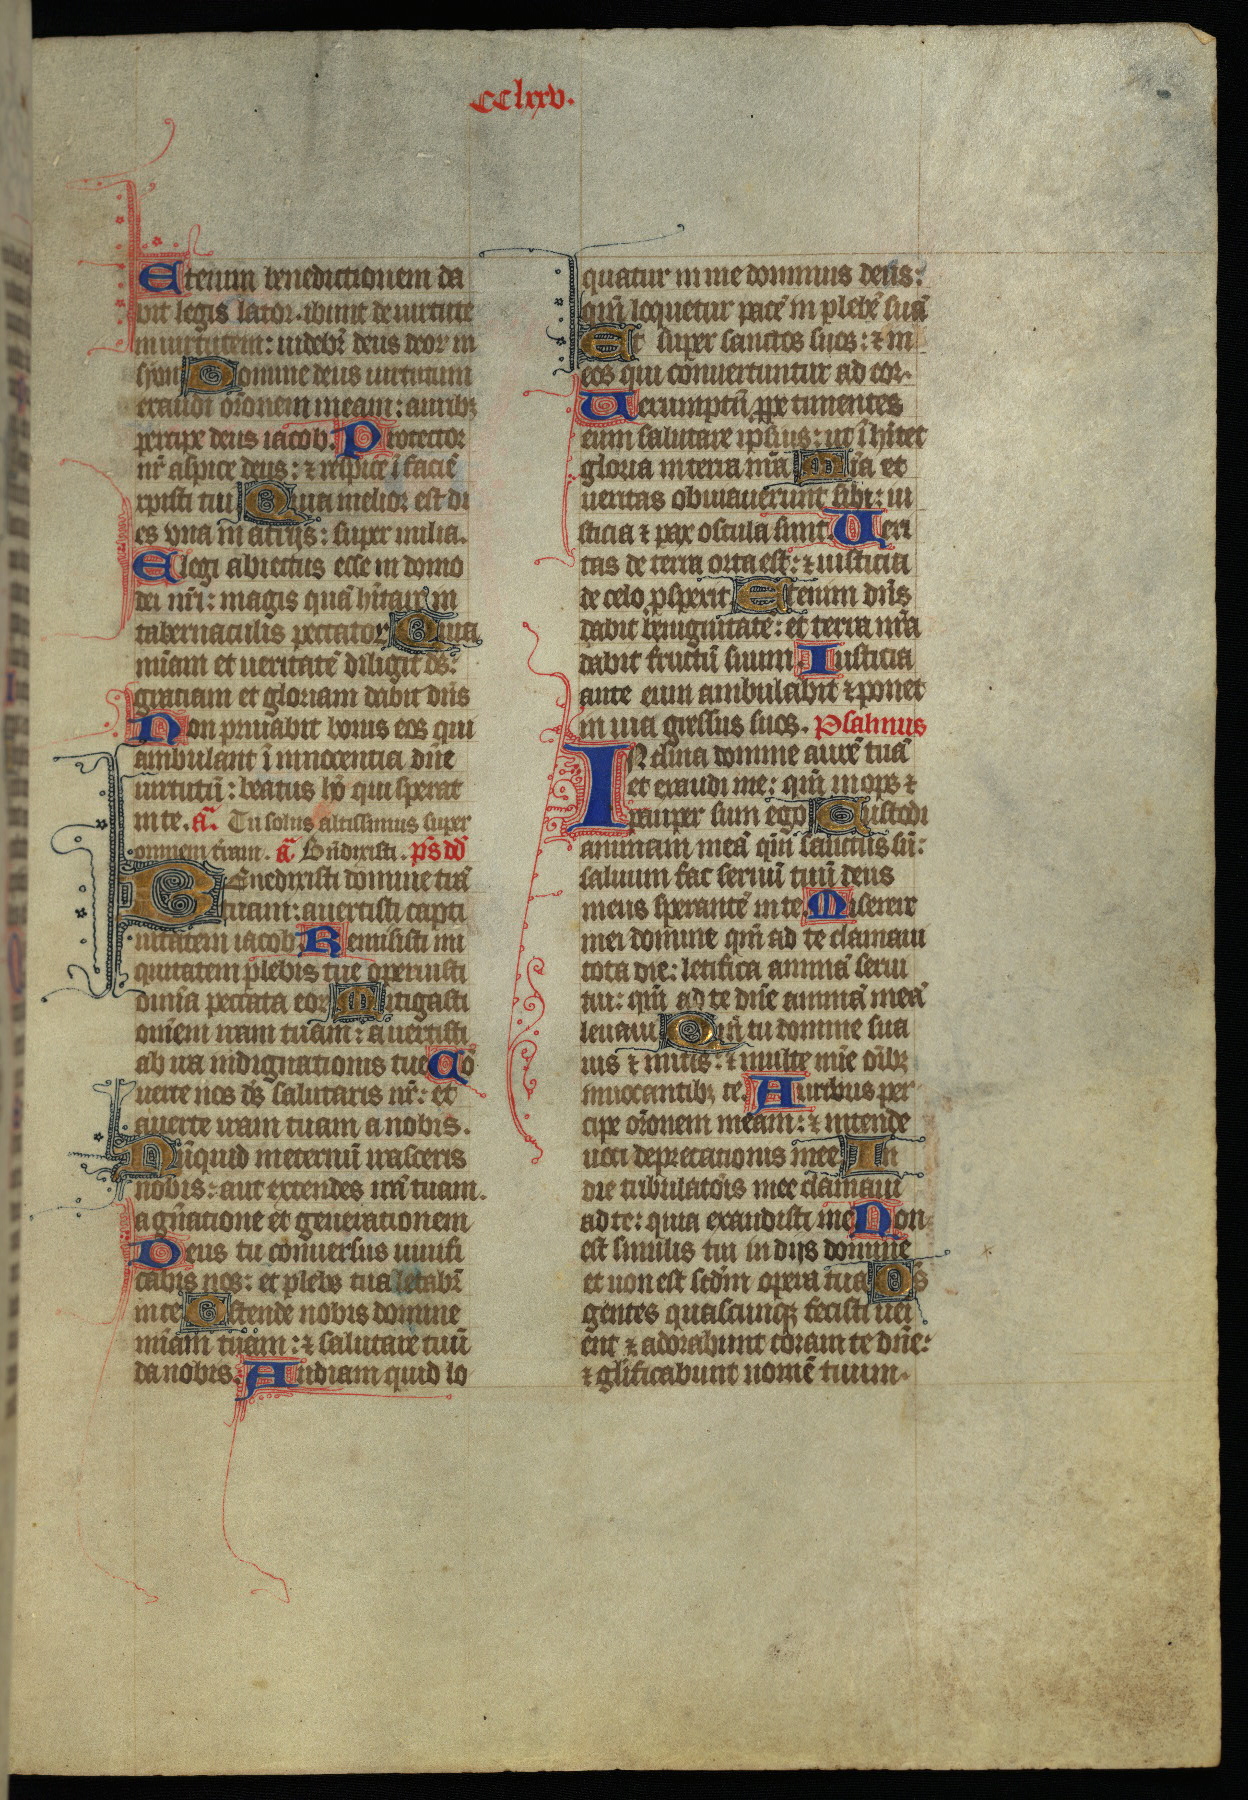 CClxxv.
Etenim benedictionem da
bit legis lator. ibunt de uirtute
in uirtutem: uidebit᷑ deus deoꝝ in
syon Domine deus uirtutum
exaudi or̄onem meam: auribꝫ
percipe deus iacob. Protector
nr̄ aspice deus: ⁊ respice ī faciē
xpisti tui Quia melior est di
es vna in atrijs: super milia.
Elegi abiectus esse in domo
dei mr̄i: magis quā hītare in
tabernaculis peccatoꝝ Quia
mīam et ueritatē diligit ds̄:
gratiam et gloriam dabit dn̄s
Non priuabit bonis eos qui
ambulant ī innocentia dn̄e
uirtutū: beatus hō qui sperat
in te. a᷑. Tu solus altissimus super
omnem t̄ram. a᷑ Bn̄dixisti. ps̄ dd̄
Benedixisti domine t̄rā
tuam: auertisti capti
uitatem iacob Remisisti ini
quitatem plebis tue operuisti
omīa peccata eoꝝ Mitigasti
om̄em iram tuam: auertisti
ab ira indignationis tue Cō
uerte nos ds̄ salutaris nr̄: et
auerte iram tuam a nobis.
Nūquid in eternū irasceris
nobis: aut extendes irā tuam.
a gn̄atione et generationem
Deus tu conuersus uiuifi
cabis nos: et plebs tua letabit᷑
in te Ostende nobis domine
mīam tuam: ⁊ salutare tuū
da nobis. Audiam quid lo
quatur in me dominus deus:
qm̄ loquetur pacē in plebē suā
Et super sanctos suos: ⁊ in
eos qui conuertuntur ad cor.
Uerumptn̄ ꝓpe timentes
eum salutare ipsius: ut ī hītet
gloria in terra nr̄a Mīa et
ueritas obuiauerunt sibi: iu
sticia ⁊ pax osculata sunt. Ueri
tas de terra orta est: ⁊ iusticia
de celo ꝓsperit Etenim dn̄s
dabit benignitatē: et terra nr̄a
dabit fructū suum Iusticia
ante eum ambulabit ⁊ ponet
in uia gressus suos. Psalmus
Inclina domine aurē tuā
et exaudi me: qm̄ inops ⁊
pauper sum ego Custodi
animam meā qm̄ sanctus sū:
saluum fac seruū tuū deus
meus sperantē in te. Miserere
mei domine qm̄ ad te clamaui
tota die: letifica animā serui
tui: qm̄ ad te dn̄e animā meā
leuaui Qm̄ tu domine sua
uis ⁊ mitis: ⁊ multe mīe oībꝫ
inuocantibꝫ te. Auribus per
cipe or̄onem meam: ⁊ intende
uoci deprecationis mee In
die tribulatōis mee clamaui
ad te: quia exaudisti me Non
est similis tui in dijs domine
et non est scd̄m opera tua Oēs
gentes quascunqꝫ fecisti ueni
ent ⁊ adorabunt coram te dn̄e:
⁊ glīficabunt nomē tuum.